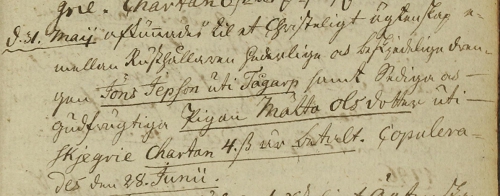 grie. Chartan
d. 31. Maij afkunnades til et Christeligt ägtenskap e-
mellan Rusthållaren hederlige og beskjedelige dren-
gen Jöns Jepson uti Tågarp samt Sediga og
gudfrugtiga Pigan Malta Ols dotter uti
Skjegrie Chartan 4. ß är bitalt. Copulera-
des den 28. Junii.